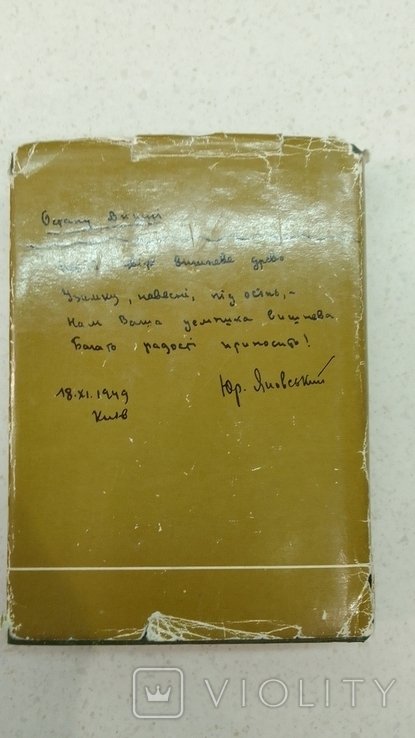 Остапу Вишні
вишневе древо
Узимку, навесні, під осінь,-
Нам Ваша усмішка вишнева
Багато радості приносить!
18.XI.1949
Київ
Юр. Яновський
VIOLITY